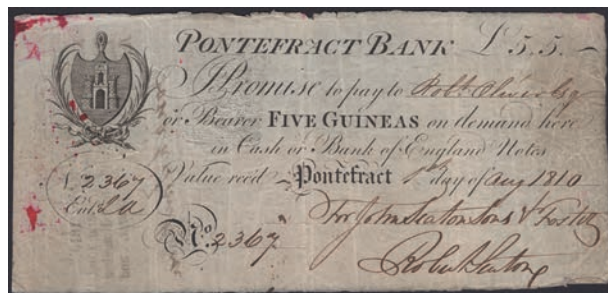 PONTEFRACT BANK £5.5.—
I Promise to pay to Robt. Oliver Esq
or Bearer FIVE GUINEAS on demand here
in Cash or Bank of England Notes
Value recd. Pontefract 1st day of Aug 1810
No. 2367
Entd.
For John Seaton Sons & Foster
No. 2367
Robert Seaton